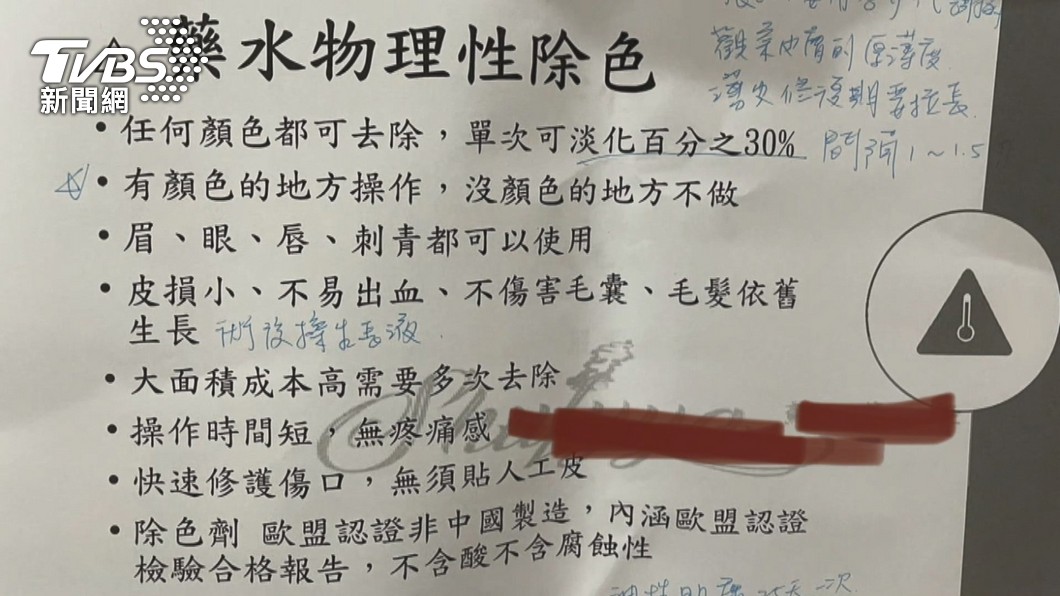 TVBS
新聞網
藥水物理性除色
觀察皮膚的厚薄度
薄皮修復期要拉長
•任何顏色都可去除，單次可淡化百分之30%
間隔1～1.5
•有顏色的地方操作，沒顏色的地方不做
•眉、眼、唇、刺青都可以使用
•皮損小、不易出血、不傷害毛囊、毛髮依舊
生長 術後擦生長液.
•大面積成本高需要多次去除
•操作時間短，無疼痛感
•快速修護傷口，無須貼人工皮
•除色劑 歐盟認證非中國製造，內涵歐盟認證
檢驗合格報告，不含酸不含腐蝕性